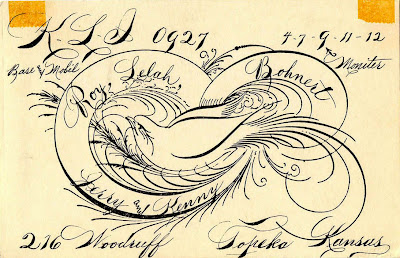 K-L-I 0927 4-7-9-11-12
Base & Mobil & Moniter
Roy, Lelah, Bohnert
Jerry and Kenny
276 Woodruff Topeka Kansus